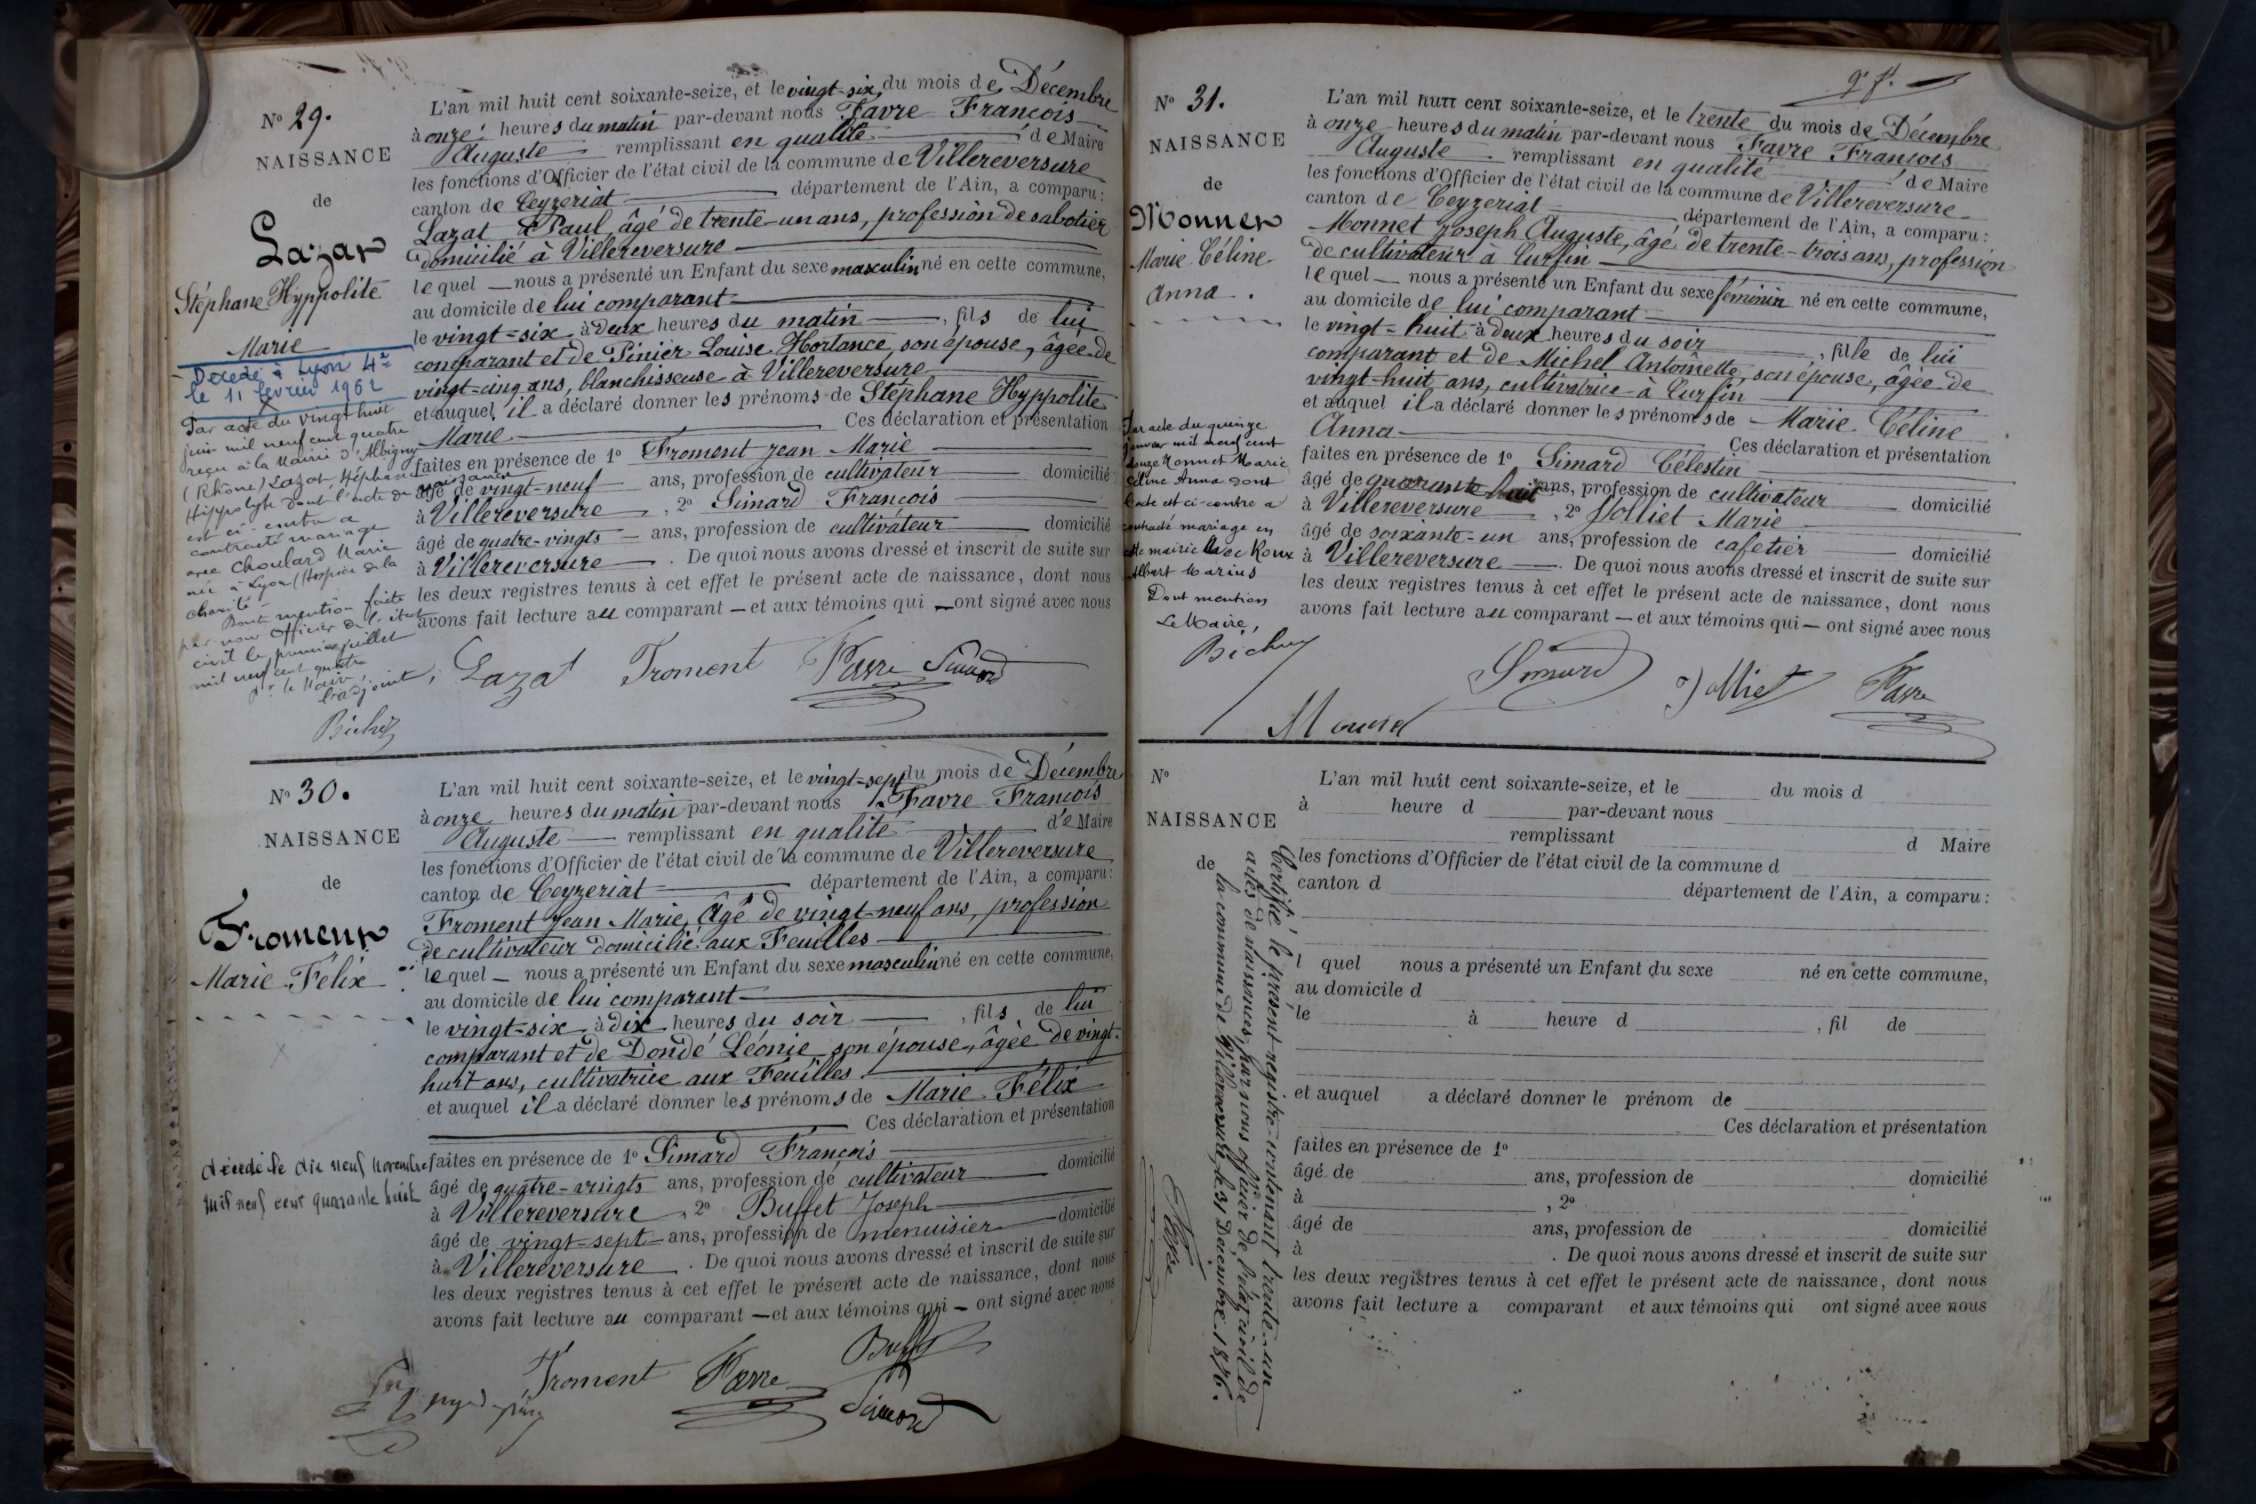 N° 29.
NAISSANCE
de
Lazat
Stéphane Hyppolite
Marie
Décédé à Lyon 4e
le 11 février 1962
Par acte du vingt huit
juin mil neuf cent quatre
reçu à la Mairie d'Albigny
(Rhône) Lazat Stéphane
Hippolyte dont l'acte de naissance
est ci contre a
contracté mariage
avec Choulard Marie
née à Lyon (Hospice de la
charité
Dont mention faite
par nous Officier de l'état
civil le premier juillet
mil neuf cent quatre
Pr le Maire,
l'adjoint,
L'an mil huit cent soixante-seize, et le vingt-six du mois de Décembre
à onze heures du matin par-devant nous Favre François
Auguste remplissant en qualité de Maire
les fonctions d'Officier de l'état civil de la commune de Villereversure
canton de Ceyzeriat département de l'Ain, a comparu:
Lazat Paul, âgé de trente-un ans, profession de sabotier
domicilié à Villereversure
lequel nous a présenté un Enfant du sexe masculin né en cette commune,
au domicile de lui comparant
le vingt=six à deux heures du matin, fils de lui
comparant et de Pinier Louise Hortance, son épouse, âgée de
vingt-cinq ans, blanchisseuse à Villereversure
et auquel il a déclaré donner les prénoms de Stéphane Hyppolite
Marie Ces déclaration et présentation
faites en présence de 1° Froment Jean Marie
âgé de vingt-neuf ans, profession de cultivateur domicilié
à Villereversure, 2° Simard François
âgé de quatre-vingts ans, profession de cultivateur domicilié
à Villereversure. De quoi nous avons dressé et inscrit de suite sur
les deux registres tenus à cet effet le présent acte de naissance, dont nous
avons fait lecture au comparant — et aux témoins qui — ont signé avec nous
Lazat Froment Favre Simard
N° 30.
NAISSANCE
de
Froment
Marie Félix
décédé le dix neuf Novembre
mil neuf cent quarante huit
L'an mil huit cent soixante-seize, et le vingt=sept du mois de Décembre
à onze heures du matin par-devant nous Favre François
Auguste remplissant en qualité de Maire
les fonctions d'Officier de l'état civil de la commune de Villereversure
canton de Ceyzeriat département de l'Ain, a comparu:
Froment Jean Marie, Agé de vingt-neuf ans, profession
de cultivateur domicilié aux Feuilles
lequel — nous a présenté un Enfant du sexe masculin né en cette commune,
au domicile de lui comparant
le vingt=six à dix heures du soir, fils de lui
comparant et de Dondé Léonie son épouse, âgée de vingt-
huit ans, cultivatrice aux Feuilles
et auquel il a déclaré donner les prénoms de Marie Félix
Ces déclaration et présentation
faites en présence de 1° Simard François
âgé de quatre-vingts ans, profession de cultivateur domicilié
à Villereversure, 2° Buffet Joseph
âgé de vingt=sept ans, profession de menuisier domicilié
à Villereversure. De quoi nous avons dressé et inscrit de suite sur
les deux registres tenus à cet effet le présent acte de naissance, dont nous
avons fait lecture au comparant — et aux témoins qui — ont signé avec nous
Froment Favre Buffet
Simard
N° 31.
NAISSANCE
de
Monnet
Marie Céline
Anna.
Par acte du quinze
janvier mil neuf cent
douze Monnet Marie
Céline Anna dont
l'acte est ci-contre a
contracté mariage en
cette mairie avec Roux
Albert Marius
Dont mention
Le Maire,
L'an mil huit cent soixante-seize, et le trente du mois de Décembre
à onze heures du matin par-devant nous Favre François
Auguste remplissant en qualité de Maire
les fonctions d'Officier de l'état civil de la commune de Villereversure
canton de Ceyzeriat département de l'Ain, a comparu:
Monnet Joseph Auguste, âgé de trente-trois ans, profession
de cultivateur à Curfin
lequel — nous a présenté un Enfant du sexe féminin né en cette commune,
au domicile de lui comparant
le vingt=huit à deux heures du soir, fille de lui
comparant et de Michel Antoinette, son épouse, âgée de
vingt-huit ans, cultivatrice à Curfin
et auquel il a déclaré donner les prénoms de Marie Céline
Anna Ces déclaration et présentation
faites en présence de 1° Simard Célestin
âgé de quarante huit ans, profession de cultivateur domicilié
à Villereversure, 2° Jolliet Marie
âgé de soixante=un ans, profession de cafetier domicilié
à Villereversure. De quoi nous avons dressé et inscrit de suite sur
les deux registres tenus à cet effet le présent acte de naissance, dont nous
avons fait lecture au comparant — et aux témoins qui — ont signé avec nous
Simard Jolliet Favre
Monnet
N°
NAISSANCE
de
Certifié le présent registre contenant trente-un
actes de naissances, par nous officier de l'état civil de
la commune de Villereversure, le 31 Décembre 1876.
Favre
L'an mil huit cent soixante-seize, et le du mois d
à heure d par-devant nous
remplissant d Maire
les fonctions d'Officier de l'état civil de la commune d
canton d département de l'Ain, a comparu:
quel nous a présenté un Enfant du sexe né en cette commune,
au domicile d
le à heure d , fil de
et auquel a déclaré donner le prénom de
Ces déclaration et présentation
faites en présence de 1°
âgé de ans, profession de domicilié
à , 2°
âgé de ans, profession de domicilié
à . De quoi nous avons dressé et inscrit de suite sur
les deux registres tenus à cet effet le présent acte de naissance, dont nous
avons fait lecture a comparant et aux témoins qui ont signé avec nous